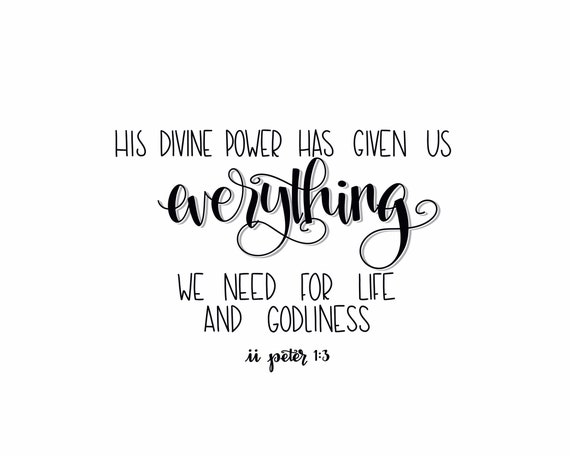 HIS DIVINE POWER HAS GIVEN US
everything
WE NEED FOR LIFE
AND GODLINESS
ii peter 1:3